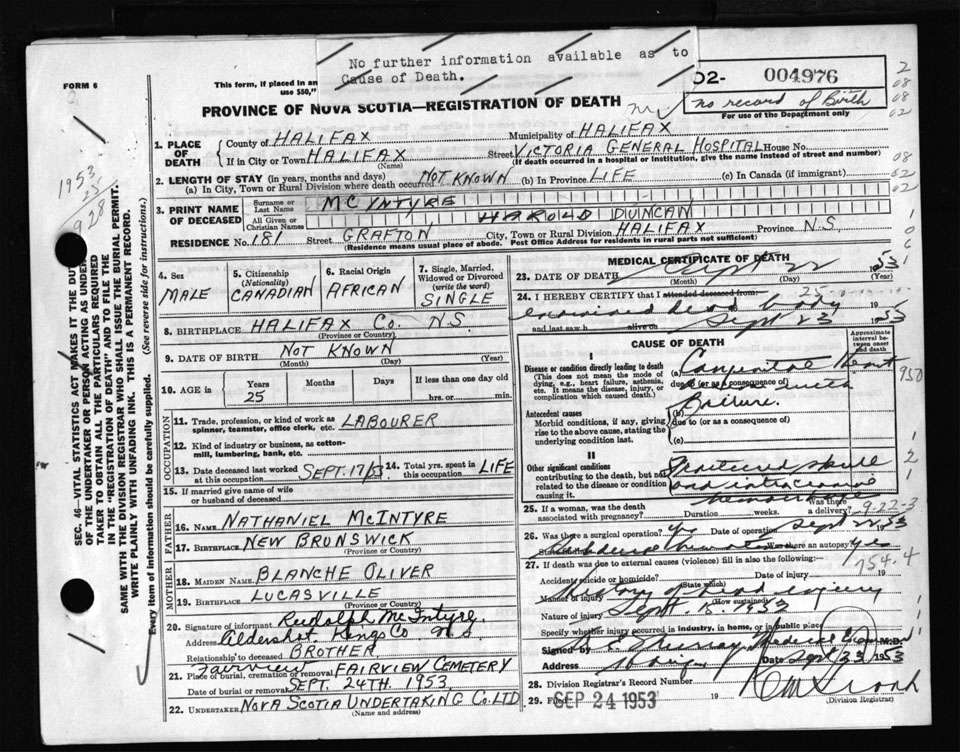 No further information available as to
Cause of Death.
FORM 6
This form, if placed in an
use $50,"
02- 004976
no record of Birth
For use of the Department only
PROVINCE OF NOVA SCOTIA—REGISTRATION OF DEATH
1. PLACE OF DEATH
County of HALIFAX
Municipality of HALIFAX
If in City or Town HALIFAX
(Name)
Street VICTORIA GENERAL HOSPITAL House No.
(If death occurred in a hospital or institution, give the name instead of street and number)
2. LENGTH OF STAY (in years, months and days)
(a) In City, Town or Rural Division where death occurred NOT KNOWN (b) In Province LIFE (c) In Canada (if immigrant)
3. PRINT NAME OF DECEASED
Surname or Last Name MCINTYRE
All Given or Christian Names HAROLD DUNCAN
RESIDENCE No. 181 Street GRAFTON City, Town or Rural Division HALIFAX Province N.S.
(Residence means usual place of abode. Post Office Address for residents in rural parts not sufficient)
4. Sex
MALE
5. Citizenship (Nationality)
CANADIAN
6. Racial Origin
AFRICAN
7. Single, Married, Widowed or Divorced (write the word)
SINGLE
8. BIRTHPLACE HALIFAX Co. N.S.
(Province or Country)
9. DATE OF BIRTH NOT KNOWN
(Month) (Day) (Year)
10. AGE IN Years Months Days If less than one day old
25 hrs. or min.
OCCUPATION
11. Trade, profession, or kind of work as
spinner, teamster, office clerk, etc. LABOURER
12. Kind of industry or business, as cotton-
mill, lumbering, bank, etc.
13. Date deceased last worked at this occupation SEPT. 17/53
14. Total yrs. spent in this occupation LIFE
15. If married give name of wife
or husband of deceased
FATHER
16. NAME NATHANIEL MCINTYRE
17. BIRTHPLACE NEW BRUNSWICK
(Province or Country)
MOTHER
18. MAIDEN NAME BLANCHE OLIVER
19. BIRTHPLACE LUCASVILLE
(Province or Country)
20. Signature of informant Rudolph McIntyre
Address Aldershot, Kings Co. N.S.
Relationship to deceased BROTHER
21. Place of burial, cremation or removal Fairview FAIRVIEW CEMETERY
Date of burial or removal SEPT. 24TH. 1953
22. UNDERTAKER NOVA SCOTIA UNDERTAKING CO. LTD
(Name and address)
MEDICAL CERTIFICATE OF DEATH
23. DATE OF DEATH Sept 22 1953
(Month) (Day) (Year)
24. I HEREBY CERTIFY that I attended deceased from:
examined dead body
and last saw h alive on Sept 23 1953
CAUSE OF DEATH
Approximate interval between onset and death
I
Disease or condition directly leading to death
(This does not mean the mode of dying, e.g., heart failure, asthenia, etc. It means the disease, injury, or complication which caused death.)
(a) Congenital Heart
due to (or as a consequence of)
Failure.
Antecedent causes
Morbid conditions, if any, giving rise to the above cause, stating the underlying condition last.
(b)
due to (or as a consequence of)
(c)
II
Other significant conditions
contributing to the death, but not related to the disease or condition causing it.
Fractured skull
and intracranial
hemorrhage
25. If a woman, was the death associated with pregnancy? Duration weeks. Was there a delivery?
9-22-3
26. Was there a surgical operation? Yes Date of operation Sept 22, 53
Was there an autopsy? Yes
27. If death was due to external causes (violence) fill in also the following:
754.4
Accident, suicide or homicide? Date of injury 19
(State which)
Manner of injury History of head injury
(How sustained)
Nature of injury Sept. 15. 1953
Specify whether injury occurred in industry, in home, or in public place
Signed by Murray Medical Examiner M.D.
Address Halifax Date Sept 23 1953
28. Division Registrar's Record Number
29. Filed SEP 24 1953 19
(Division Registrar)
1953
25
928
SEC. 46—VITAL STATISTICS ACT MAKES IT THE DUTY
OF THE UNDERTAKER OR PERSON ACTING AS UNDER-
TAKER TO OBTAIN ALL THE PARTICULARS REQUIRED
IN THE "REGISTRATION OF DEATH" AND TO FILE THE
SAME WITH THE DIVISION REGISTRAR WHO SHALL ISSUE THE BURIAL PERMIT.
WRITE PLAINLY WITH UNFADING INK. THIS IS A PERMANENT RECORD.
Every item of information should be carefully supplied. (See reverse side for instructions.)